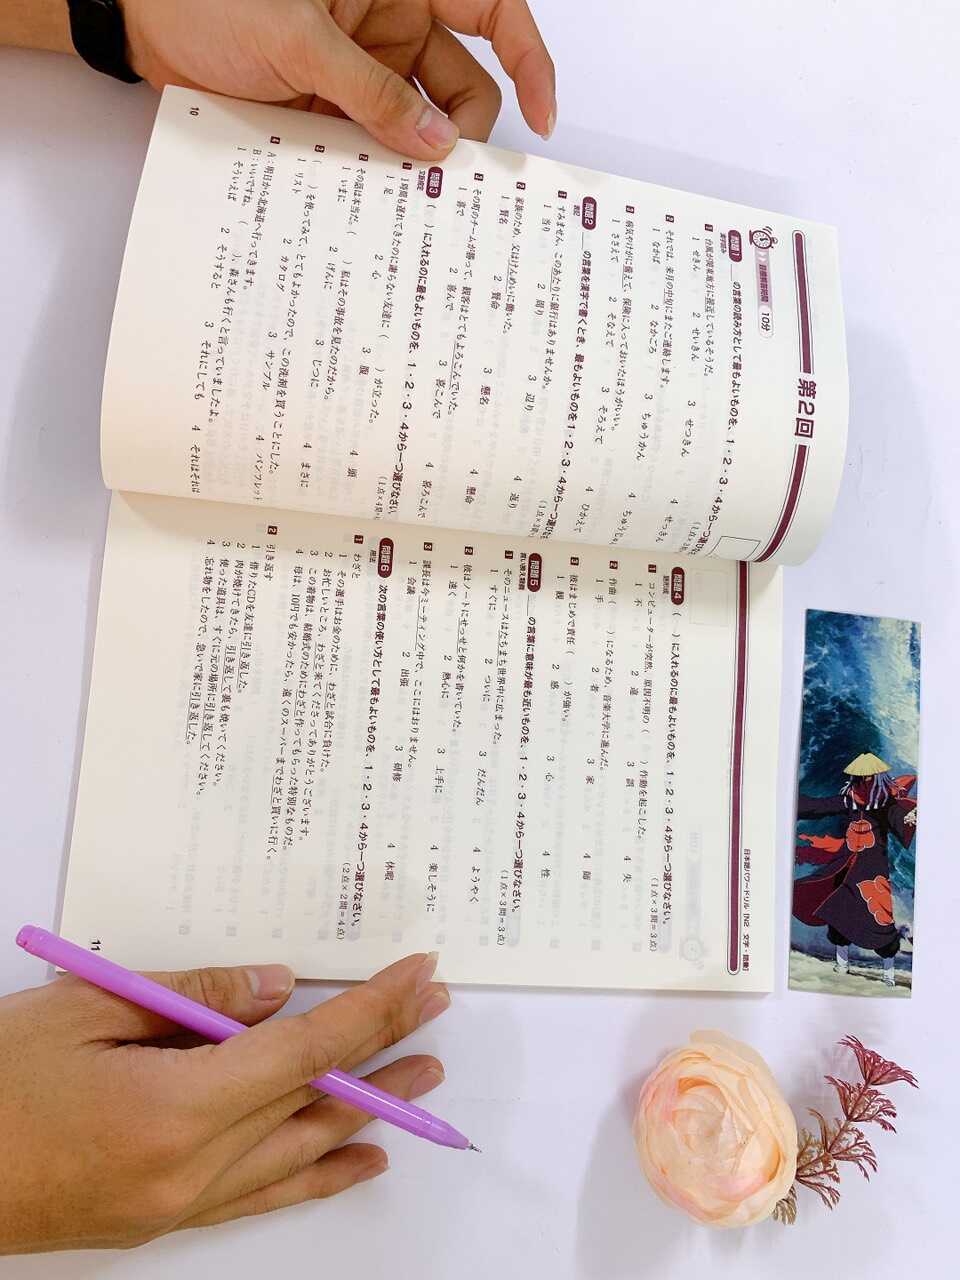 第2回
目標解答時間 10分
問題1 の言葉の読み方として最もよいものを、1・2・3・4から一つ選びなさい
漢字読み
1 台風が関東地方に接近しているそうだ。
1 せきん 2 せいきん 3 せつきん 4 せっきん
2 それでは、来月の中旬にまたご連絡します。
1 なかば 2 なかごろ 3 ちゅうかん 4
3 病気やけがに備えて、保険に入っておいたほうがいい。
1 ささえて 2 そなえて 3 そろえて 4 ひかえて
問題2 の言葉を漢字で書くとき、最もよいものを1・2・3・4から一つ選びなさい
表記
1 すみません、このあたりに銀行はありませんか。
1 当り 2 周り 3 辺り 4 返り
2 家族のため、父はけんめいに働いた。
1 賢名 2 賢命 3 懸名 4 懸命
3 その町のチームが勝って、観客はとてもよろこんでいた。
1 喜で 2 喜んで 3 喜こんで 4 喜ろこんで
問題3 ( )に入れるのに最もよいものを、1・2・3・4から一つ選びなさい
文脈規定
1 1時間も遅れてきたのに謝らない友達に( )が立った。
1 足 2 心 3 腹 4 頭
2 その話は本当だ。( )私はその事故を見たのだから。
1 いまに 2 げんに 3 じつに 4 まさに
3 ( )を使ってみて、とてもよかったので、この洗剤を買うことにした。
1 リスト 2 カタログ 3 サンプル 4 パンフレット
4 A：明日から北海道へ行ってきます。
B：いいですね。( )、森さんも行くと言っていましたよ。
1 そういえば 2 そうすると 3 それにしても 4 それはそれは
10
日本語パワードリル [N2 文字・語彙]
問題4 ( )に入れるのに最もよいものを、1・2・3・4から一つ選びなさい。
語形成 (1点×3問=3点)
1 コンピューターが突然、原因不明の( )作動を起こした。
1 不 2 違 3 誤 4 失
2 作曲( )になるため、音楽大学に進んだ。
1 手 2 者 3 家 4 師
3 彼はまじめで責任( )が強い。
1 観 2 感 3 心 4 性
問題5 の言葉に意味が最も近いものを、1・2・3・4から一つ選びなさい。
言い換え類義 (1点×3問=3点)
1 そのニュースはたちまち世界中に広まった。
1 すぐに 2 ついに 3 だんだん 4 ようやく
2 彼はノートにせっせと何かを書いていた。
1 速く 2 熱心に 3 上手に 4 楽しそうに
3 課長は今ミーティング中で、ここにはおりません。
1 会議 2 出張 3 研修 4 休暇
問題6 次の言葉の使い方として最もよいものを、1・2・3・4から一つ選びなさい。
用法 (2点×2問=4点)
1 わざと
1 その選手はお金のために、わざと試合に負けた。
2 お忙しいところ、わざと来てくださってありがとうございます。
3 この着物は、結婚式のためにわざと作ってもらった特別なものだ。
4 母は、10円でも安かったら、遠くのスーパーまでわざと買いに行く。
2 引き返す
1 借りたCDを友達に引き返した。
2 肉が焼けてきたら、引き返して裏も焼いてください。
3 使った道具は、すぐに元の場所に引き返してください。
4 忘れ物をしたので、急いで家に引き返した。
11